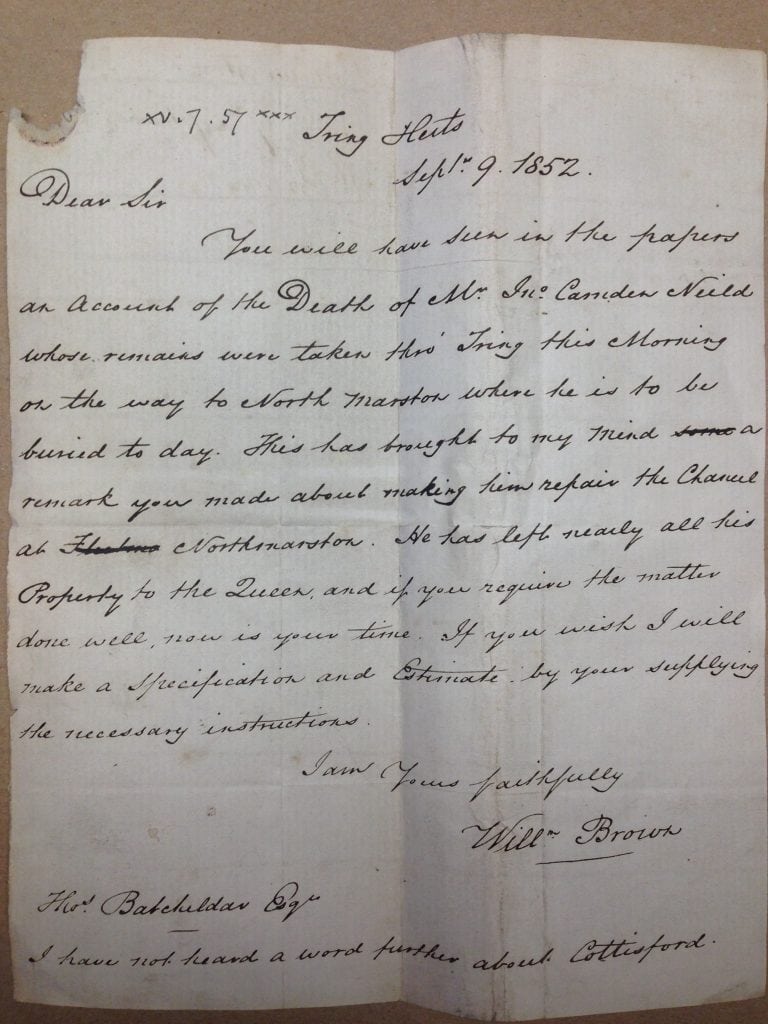 xv.7.57 xxx Tring Herts
Septr. 9. 1852.
Dear Sir
You will have seen in the papers
an Account of the Death of Mr. Jno. Camden Neild
whose remains were taken thro' Tring this Morning
on the way to North Marston where he is to be
buried to day. This has brought to my Mind some a
remark you made about making him repair the Chancel
at Northmarston. He has left nearly all his
Property to the Queen, and if you require the matter
done well, now is your time. If you wish I will
make a Specification and Estimate by your supplying
the necessary instructions.
I am Yours faithfully
Willm. Brown
Thos. Batcheldar Esqre
I have not heard a word further about Cottisford.